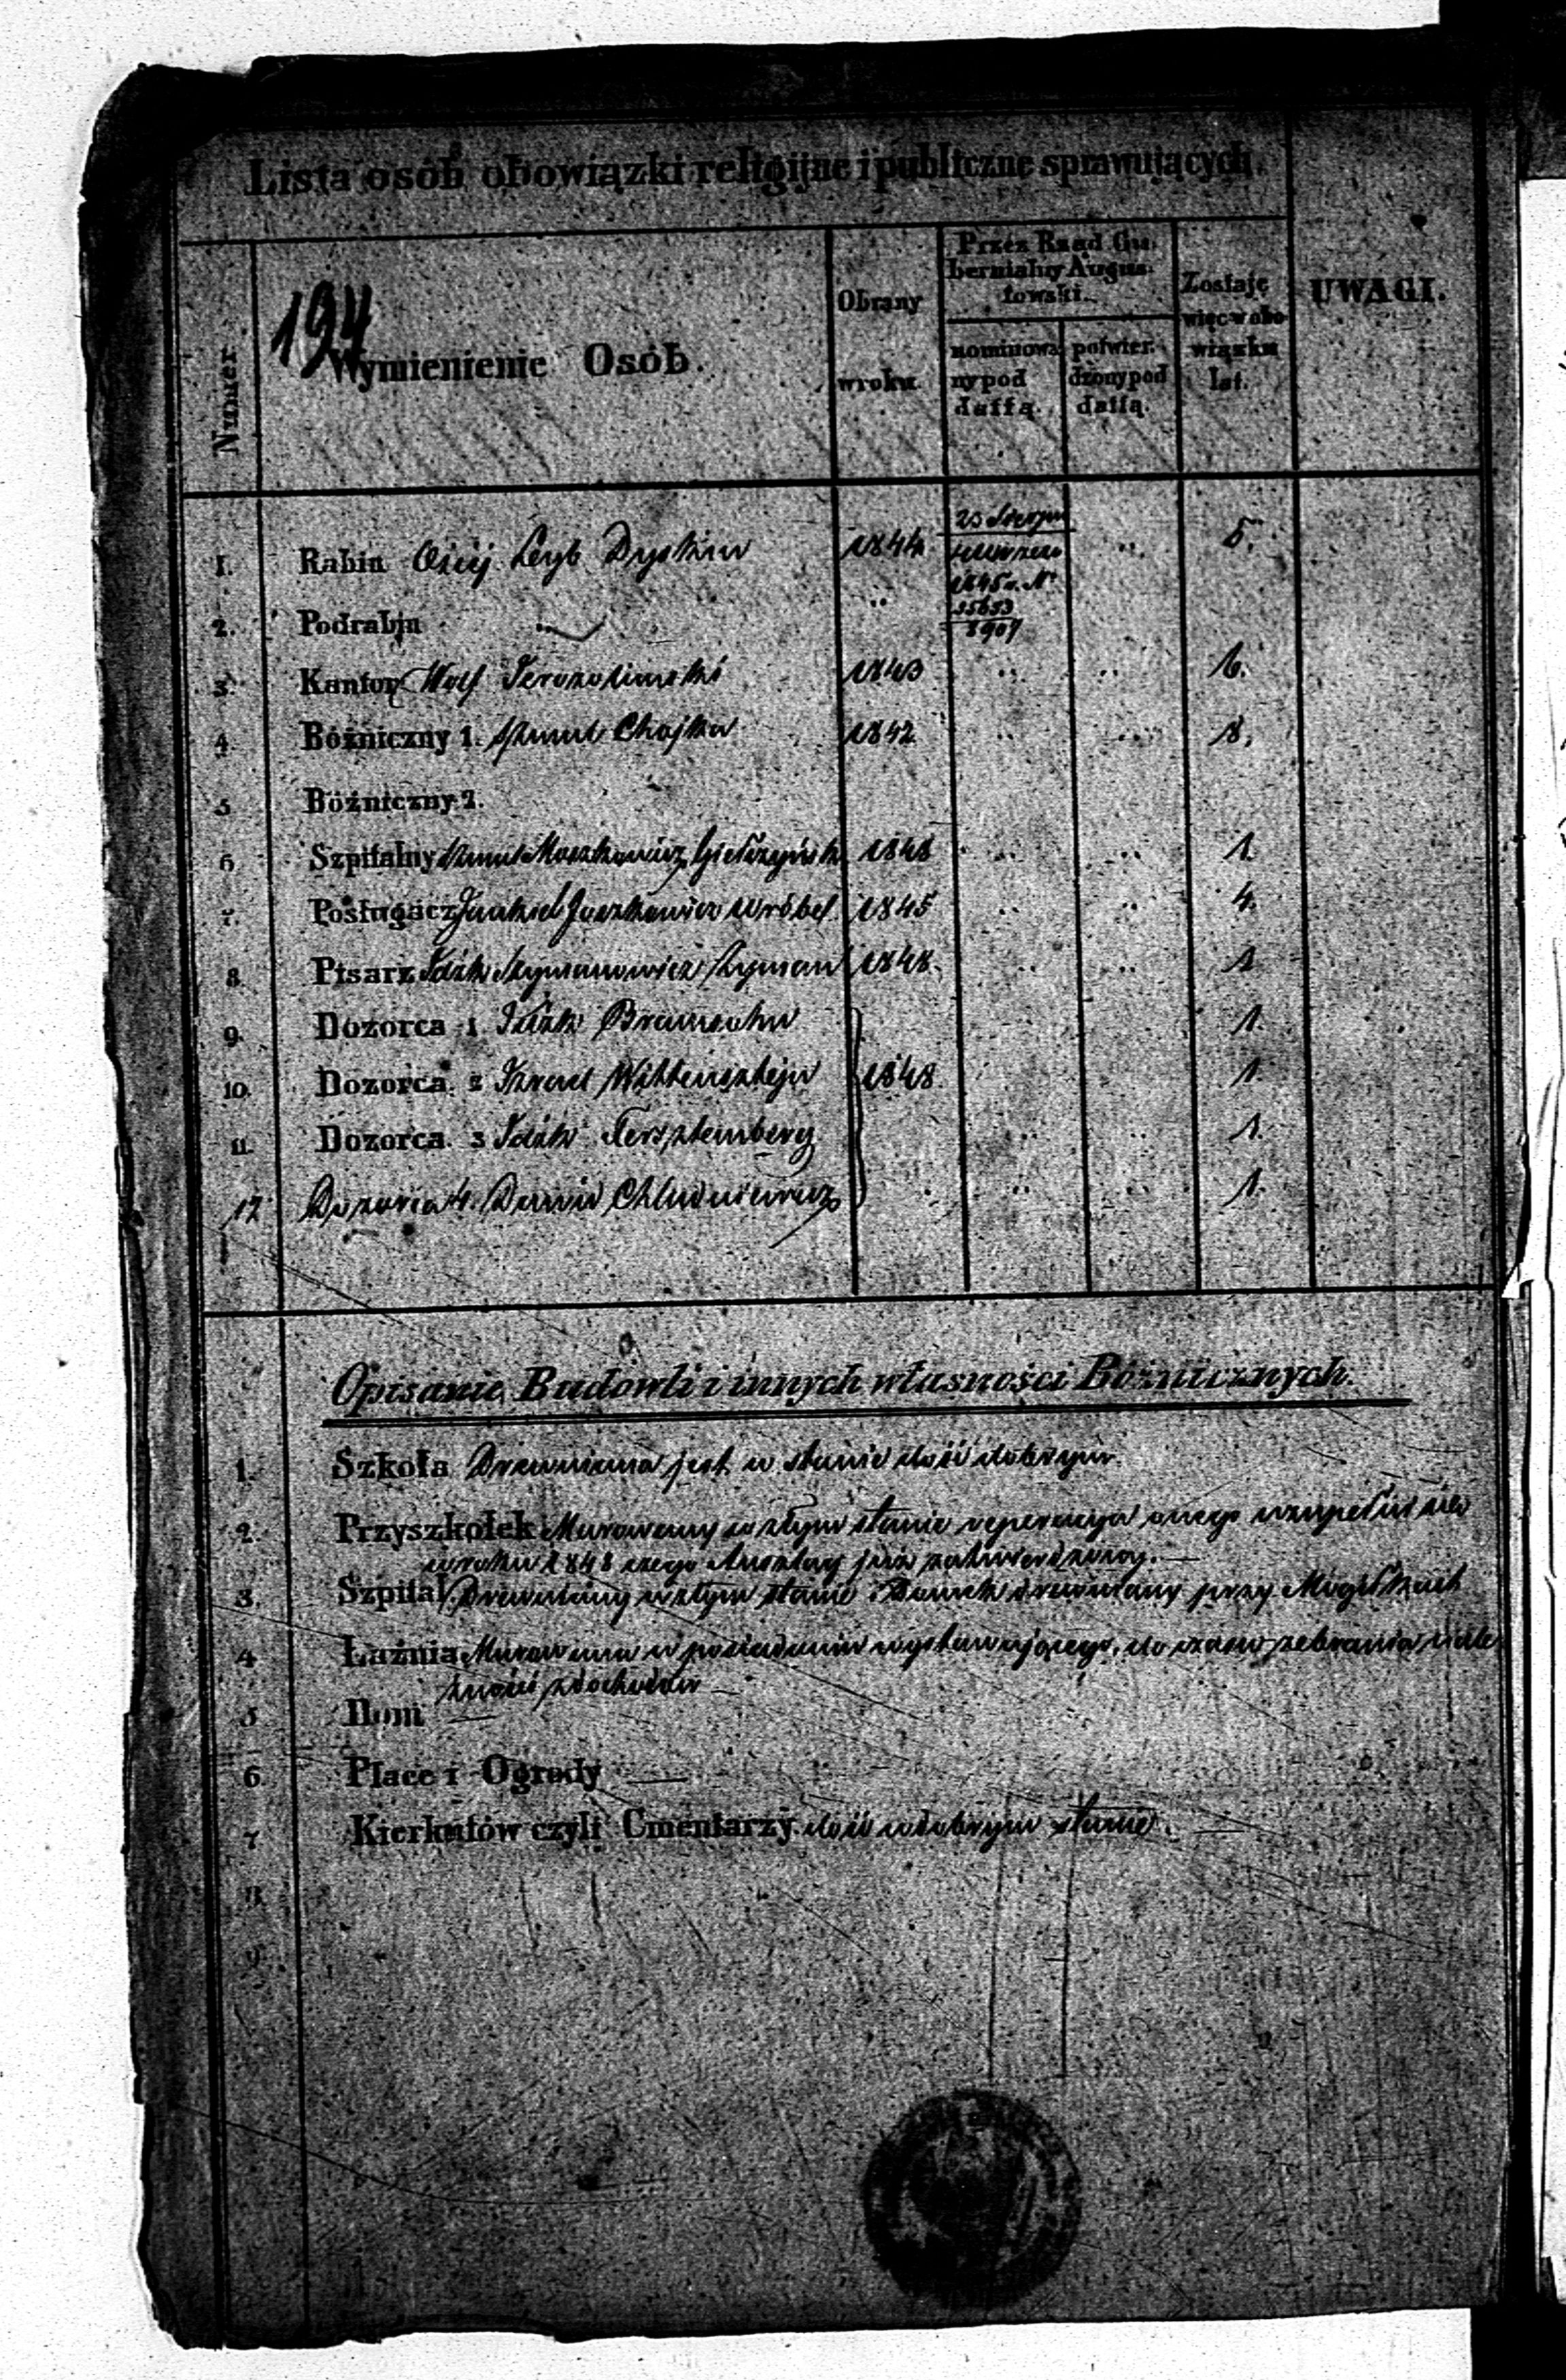 Lista osób obowiązki religijne i publiczne sprawujących.
194
Numer
Wymienienie Osób.
Obrany
w roku.
Przez Rząd Gu-
bernialny Augus-
towski.
nominowa-
ny pod
dattą.
potwier-
dzony pod
dattą.
Zostaje
więc w obo-
wiązku
lat.
UWAGI.
1. Rabin Leyb Dyskin 1844 23 Sierpn 5.
1845 r. No
35653
8907
2. Podrabin
3. Kantor Wolf Jerozolimski 1843 6.
4. Bóżniczny 1. Szmul Chajka 1842 8.
5 Bóżniczny 2.
6 Szpitalny Szmul Moszkowicz 1848 1.
7. Posługacz Jankiel Joszkowicz Wróbel 1845 4.
8. Pisarz Icik Szymanowicz Szyman 1848. 1
9. Dozorca 1 Icik 1.
10. Dozorca 2 Izrael Wittensztejn 1848. 1.
11. Dozorca 3 Icik Fersztenberg 1.
12 Dozorca 4. Dawid 1.
Opisanie Budowli i innych własności Bóżnicznych.
1. Szkoła Drewniana jest w stanie dość dobrym
2. Przyszkołek Murowany w złym stanie reperacya onego uzupełni się
w roku 1848 czego Anszlag już zatwierdzony.
3. Szpital Drewniany w złym stanie i Domek drewniany przy Mogiłkach
4 Łaźnia Murowana w posiadaniu wystawującego, do czasu zebrania nale-
żności z dochodów
5 Dom —
6 Place i Ogrody —
7 Kierkutów czyli Cmentarzy dość w dobrym stanie.
8
9